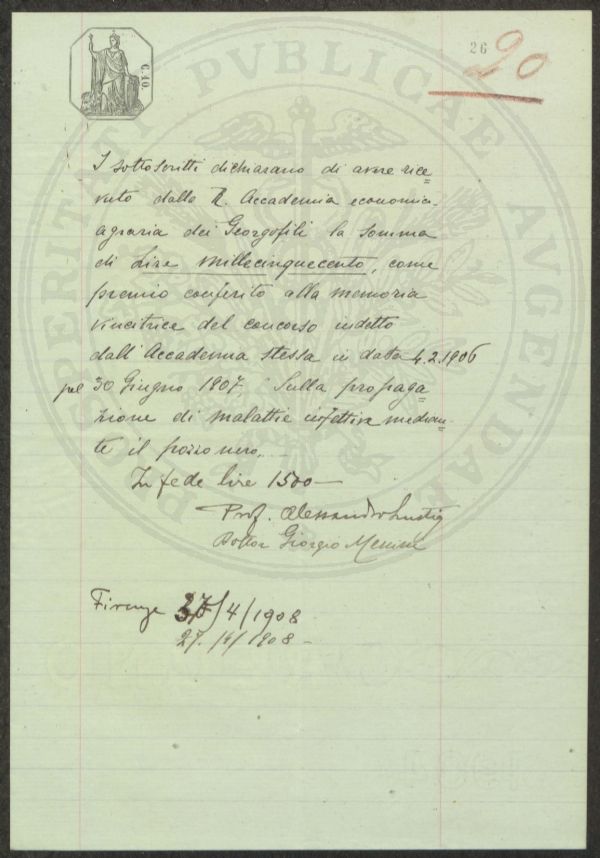 26
20
C. 10.
PROSPERITATI PVBLICAE AVGENDAE
I sottoscritti dichiarano di avere rice=
vuto dalla R. Accademia economico-
agraria dei Georgofili la somma
di Lire millecinquecento, come
premio conferito alla memoria
vincitrice del concorso indetto
dall'Accademia stessa in data 4.2.1906
pel 30 Giugno 1907, "Sulla propaga=
zione di malattie infettive median-
te il pozzo nero.
In fede lire 1500
Prof. Alessandro Lustig
Dottor Giorgio
Firenze 27/4/1908
27./4/1908